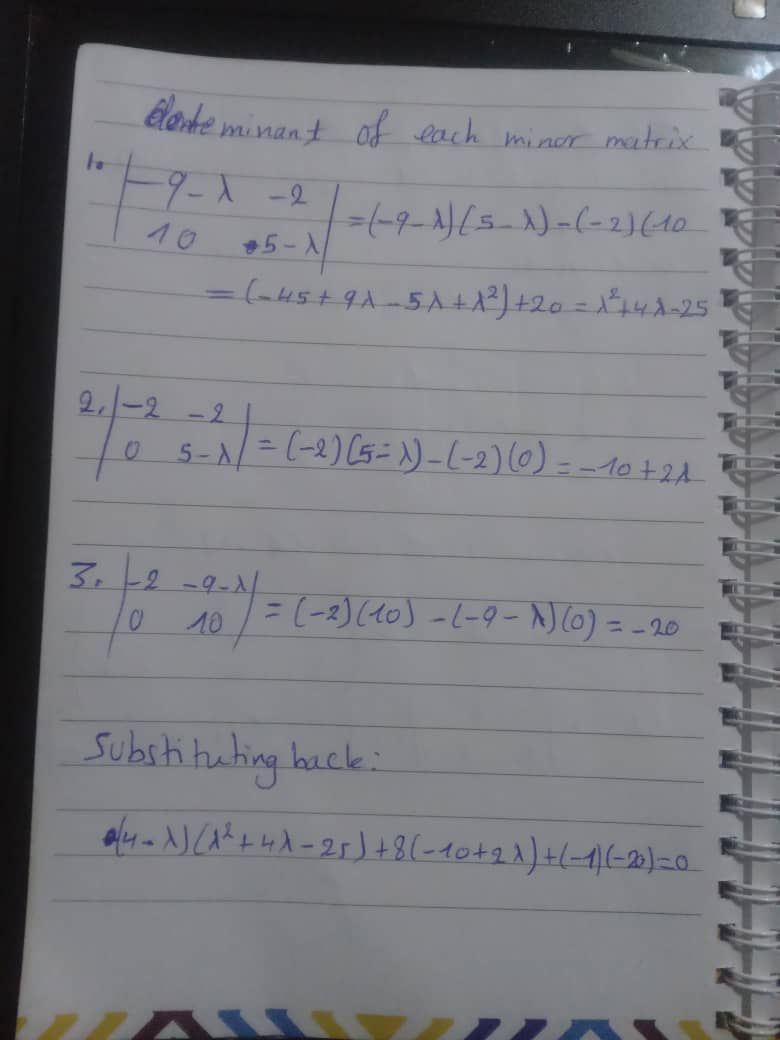 determinant of each minor matrix
1. |-9-λ -2| = (-9-λ)(5-λ)-(-2)(10
|10 5-λ|
= (-45+9λ-5λ+λ²)+20 = λ²+4λ-25
2. |-2 -2|
|0 5-λ| = (-2)(5-λ)-(-2)(0) = -10+2λ
3. |-2 -9-λ|
|0 10| = (-2)(10)-(-9-λ)(0) = -20
Substituting back:
(4-λ)(λ²+4λ-25)+8(-10+2λ)+(-1)(-20)=0